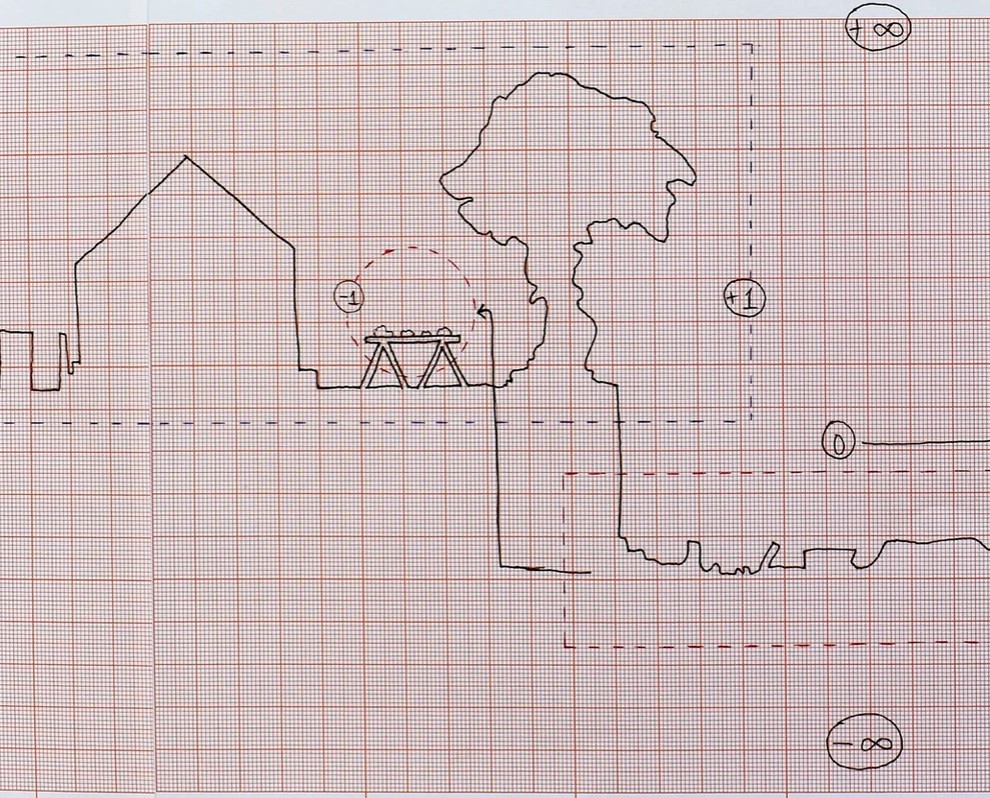 +∞
-1
+1
0
-∞